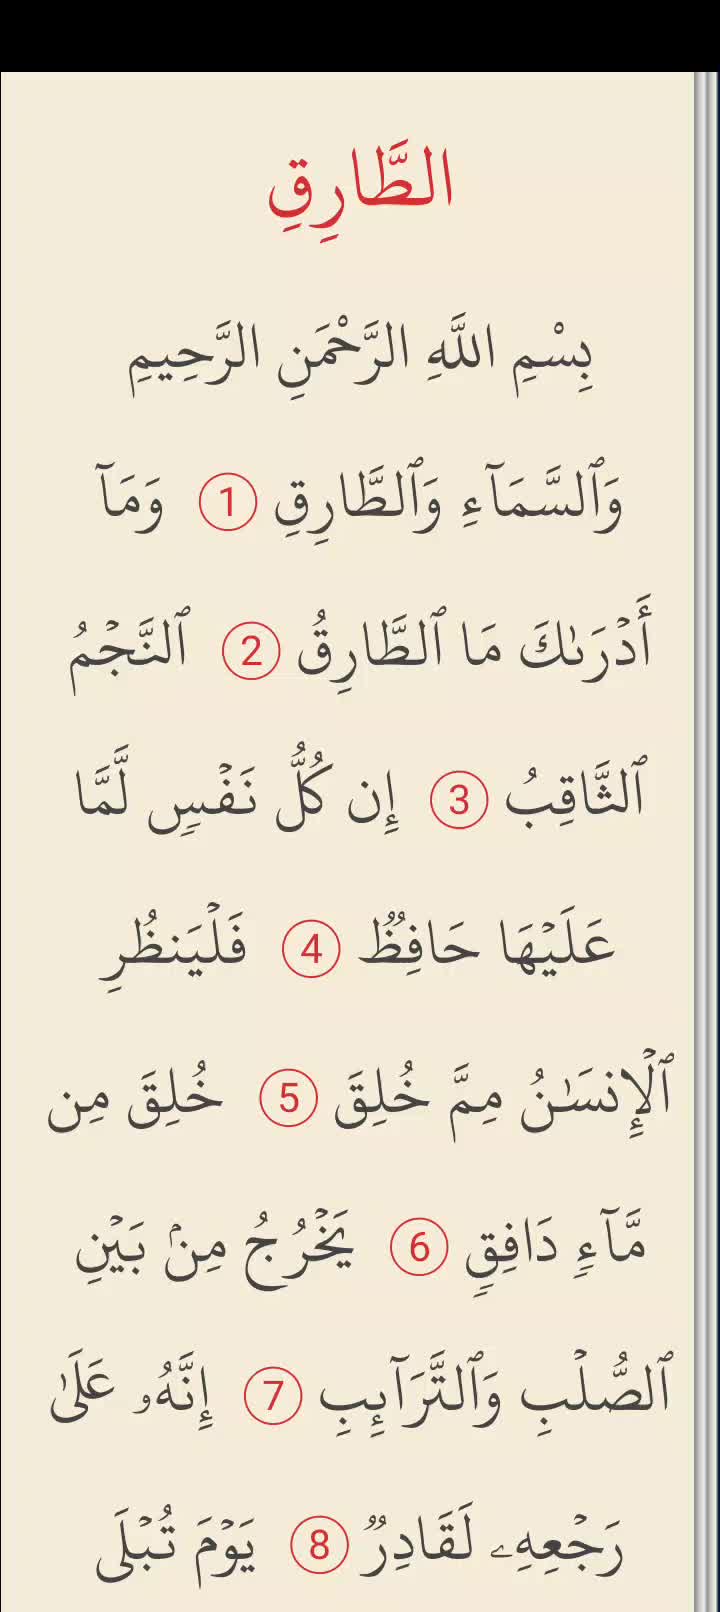 الطَّارِقِ
بِسْمِ اللَّهِ الرَّحْمَنِ الرَّحِيمِ
وَٱلسَّمَآءِ وَٱلطَّارِقِ 1 وَمَآ
أَدْرَىٰكَ مَا ٱلطَّارِقُ 2 ٱلنَّجْمُ
ٱلثَّاقِبُ 3 إِن كُلُّ نَفْسٍ لَّمَّا
عَلَيْهَا حَافِظٌ 4 فَلْيَنظُرِ
ٱلْإِنسَـٰنُ مِمَّ خُلِقَ 5 خُلِقَ مِن
مَّآءٍ دَافِقٍ 6 يَخْرُجُ مِنۢ بَيْنِ
ٱلصُّلْبِ وَٱلتَّرَآئِبِ 7 إِنَّهُۥ عَلَىٰ
رَجْعِهِۦ لَقَادِرٌ 8 يَوْمَ تُبْلَى